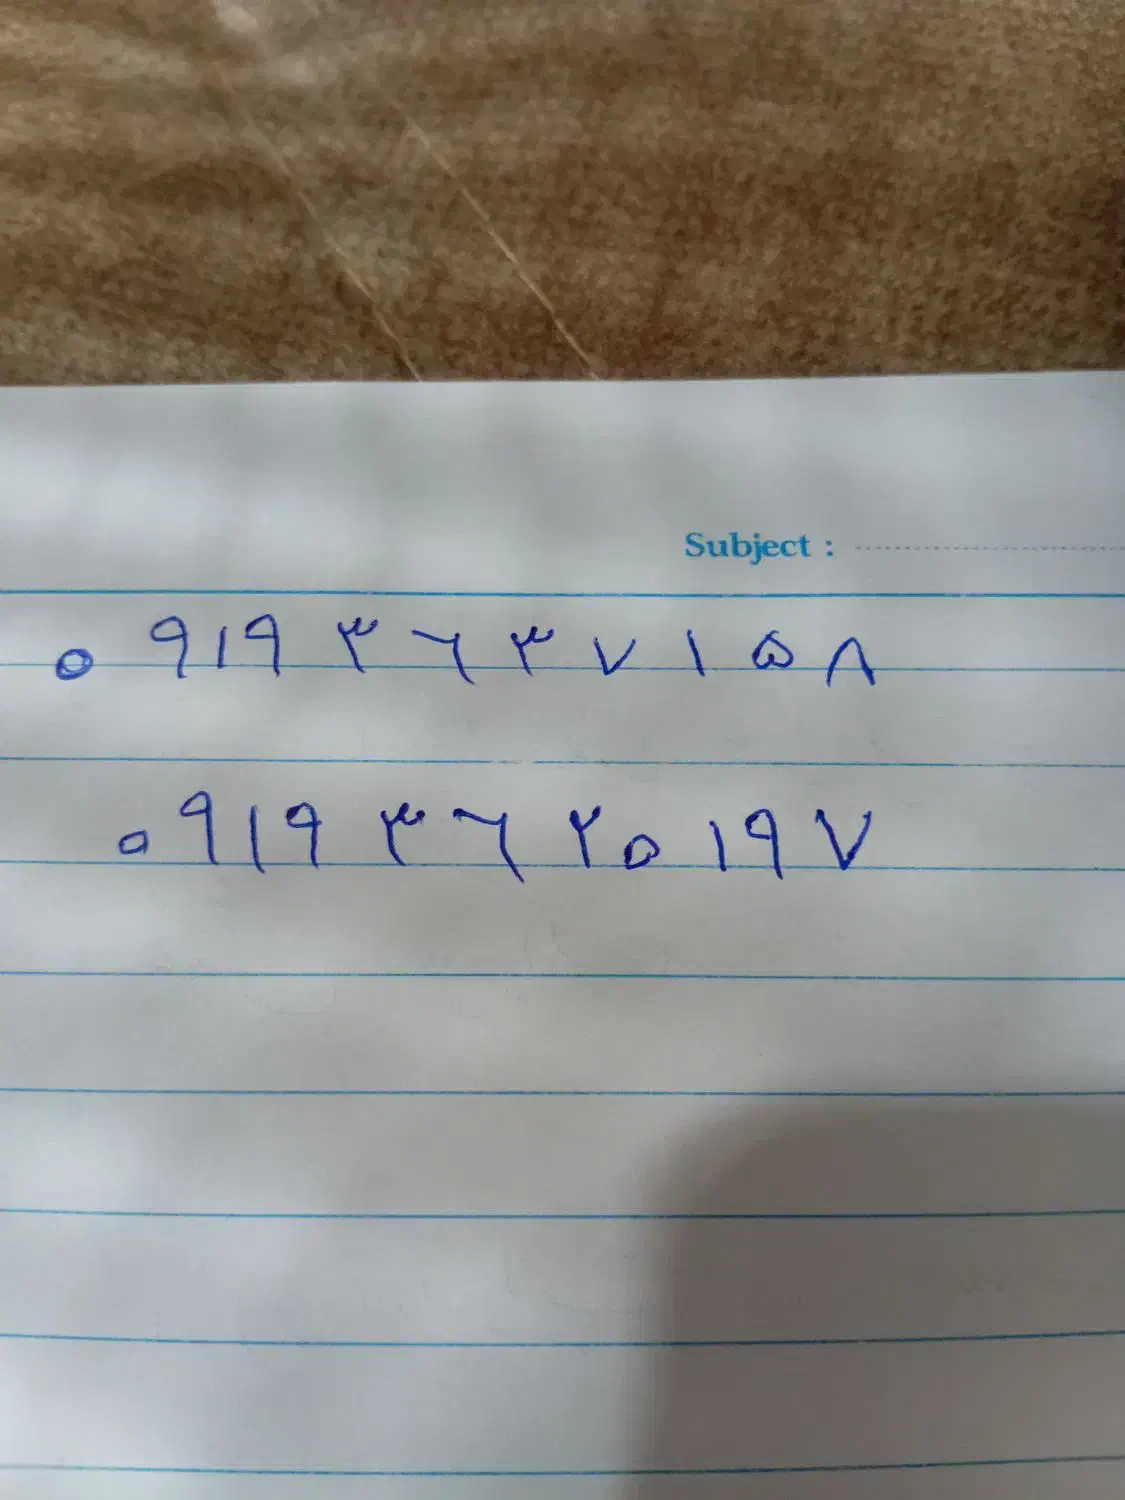 Subject :
۰۹۱۹۳۶۳۷۱۵۸
۰۹۱۹۳۶۲۵۱۹۷